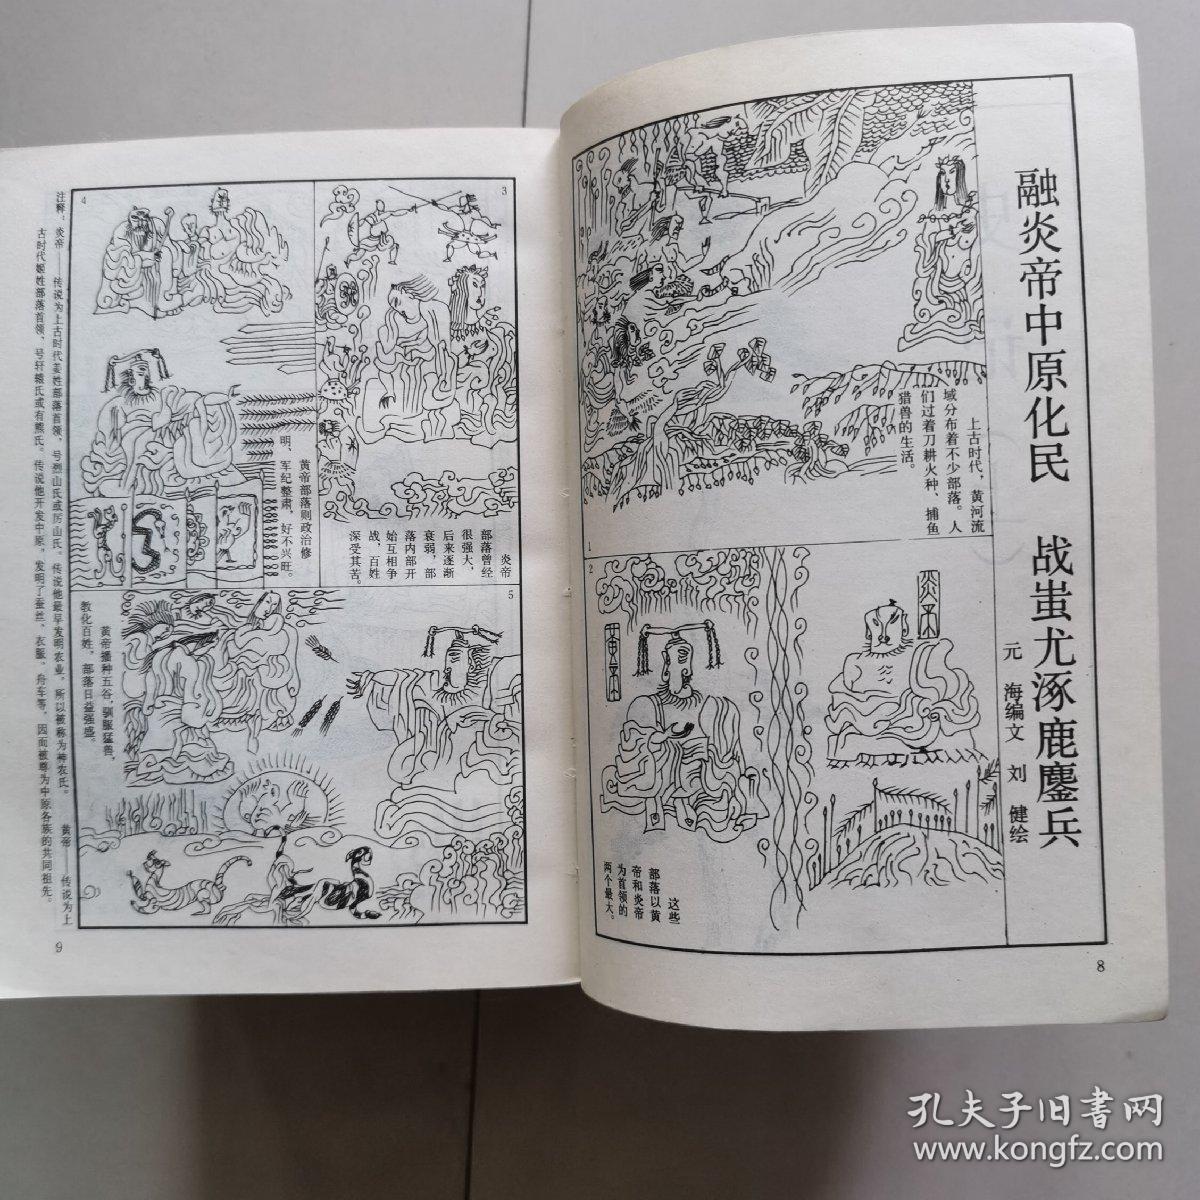 融炎帝中原化民 战蚩尤涿鹿鏖兵
元 海编文 刘 健绘
上古时代，黄河流
域分布着不少部落。人
们过着刀耕火种、捕鱼
猎兽的生活。
1
2
黄帝
炎帝
这些
部落以黄
帝和炎帝
为首领的
两个最大。
8
3
炎帝
部落曾经
很强大，
后来逐渐
衰弱，部
落内部开
始互相争
战，百姓
深受其苦。
4
黄帝部落则政治修
明、军纪整肃，好不兴旺。
5
黄帝播种五谷，驯服猛兽，
教化百姓，部落日益强盛。
注释：炎帝——传说为上古时代姜姓部落首领，号烈山氏或厉山氏。传说他最早发明农业，所以被称为神农氏。 黄帝——传说为上
古时代姬姓部落首领，号轩辕氏或有熊氏。传说他开发中原，发明了蚕丝、衣服、舟车等，因而被尊为中原各族的共同祖先。
9
孔夫子旧书网
www.kongfz.com